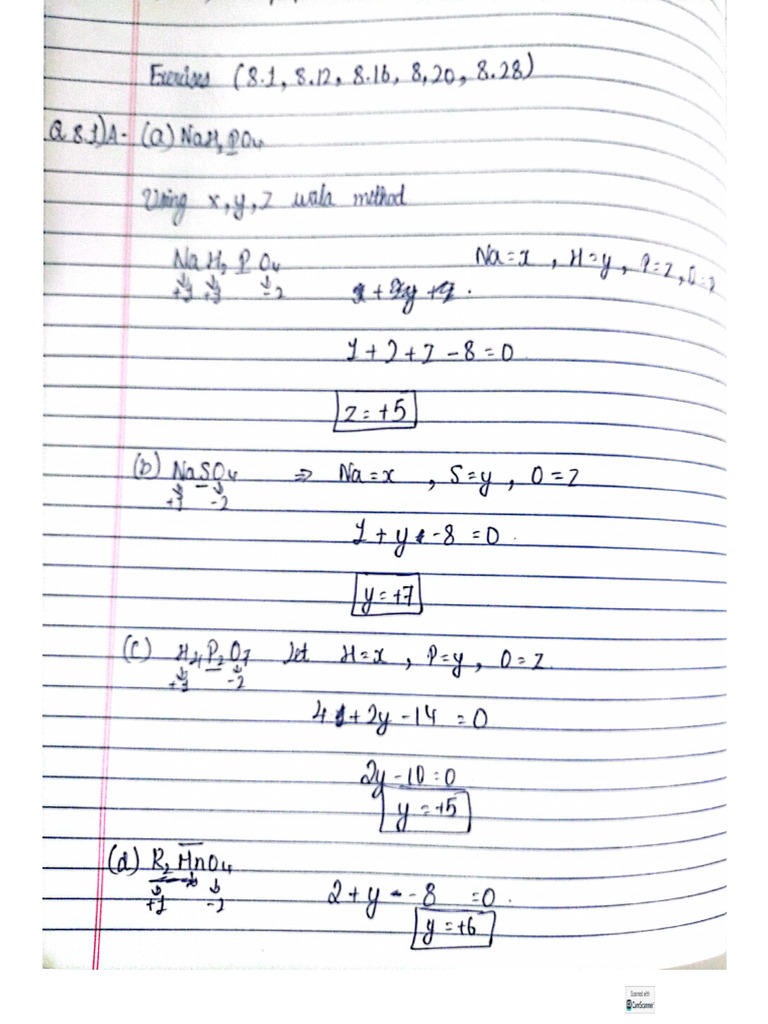 Exercises (8.1, 8.12, 8.16, 8,20, 8.28)
Q 8.1)A- (a) NaH₂PO₄
Using x, y, z wala method
NaH₂PO₄ Na=x , H=y, P=z, O=
+1 +1 -2
1+2+z-8=0
z=+5
(b) NaSO₄ ⇒ Na=x , S=y , O=z
+1 -2
1+y-8=0.
y=+7
(c) H₄P₂O₇ let H=x , P=y, O=z.
+1 -2
4+2y-14=0
2y-10=0
y=+5
(d) K₂MnO₄
+1 -2
2+y-8=0.
y=+6
Scanned with
CamScanner